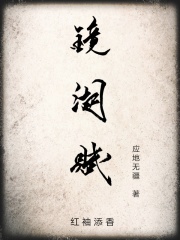 镜湖赋
应地无疆 著
红袖添香